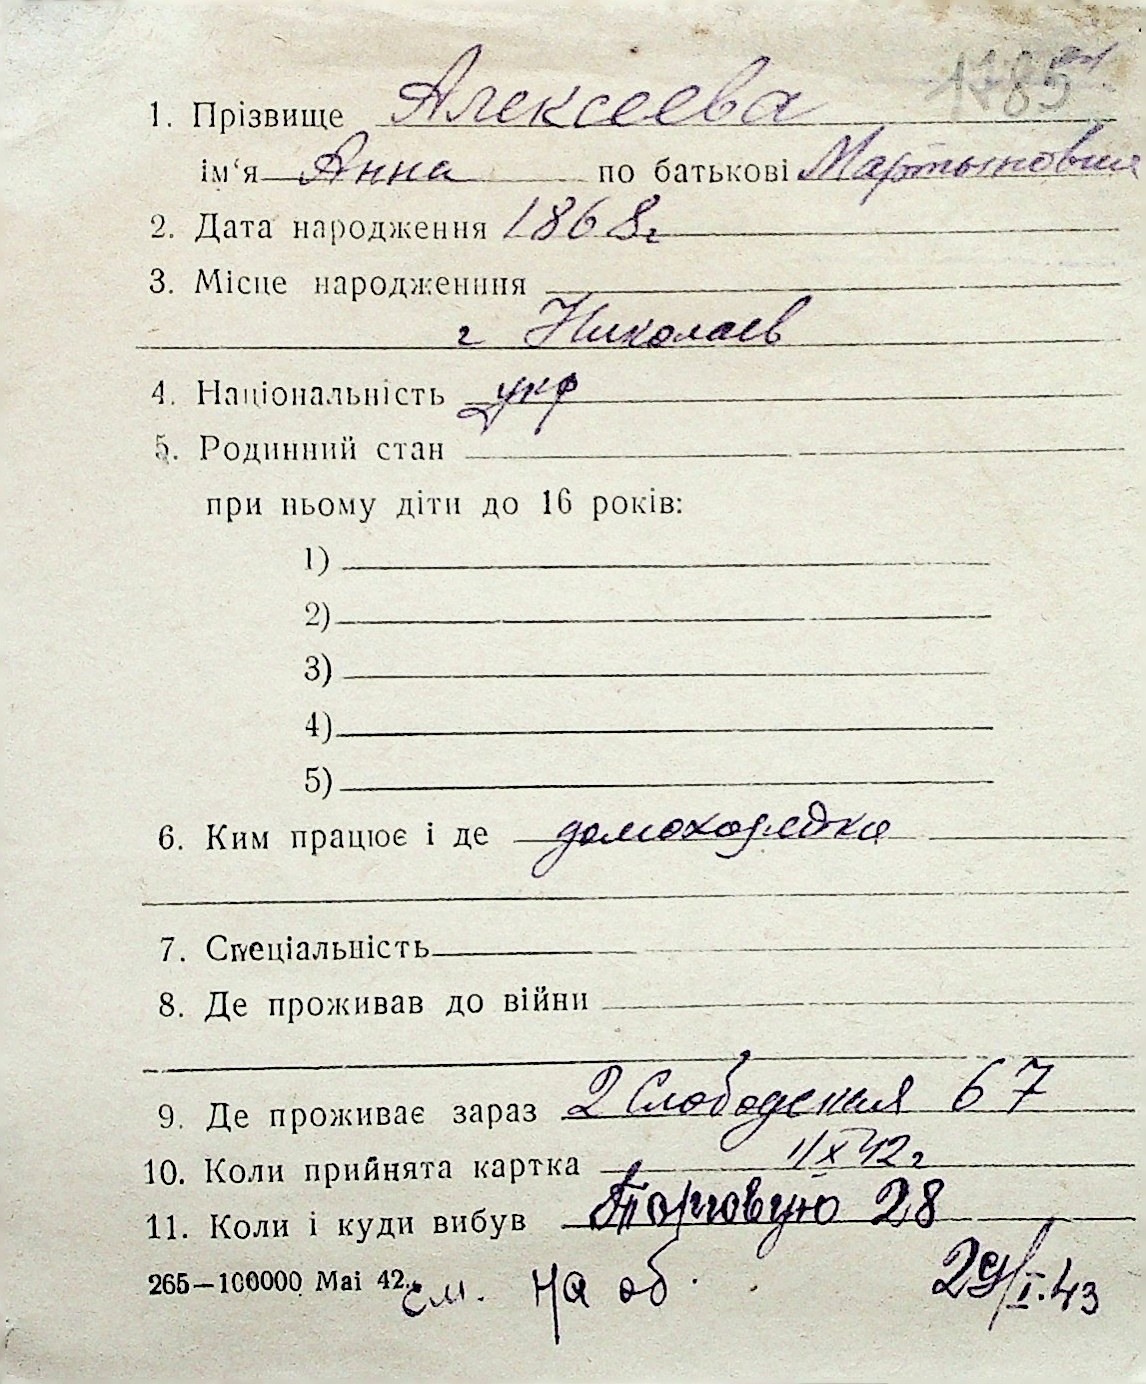 1785
1. Прізвище Алексеева
ім‘я Анна по батькові Мартыновна
2. Дата народження 1868г
3. Місце народженння
г Николаев
4. Національність укр
5. Родинний стан
при ньому діти до 16 років:
1)
2)
3)
4)
5)
6. Ким працює і де домохозяйка
7. Спеціальність
8. Де проживав до війни
9. Де проживає зараз 2 Слободская 67
10. Коли прийнята картка 1/X 42г
11. Коли і куди вибув Торговую 28
265—100000 Mai 42. см. на об. 29/I.43